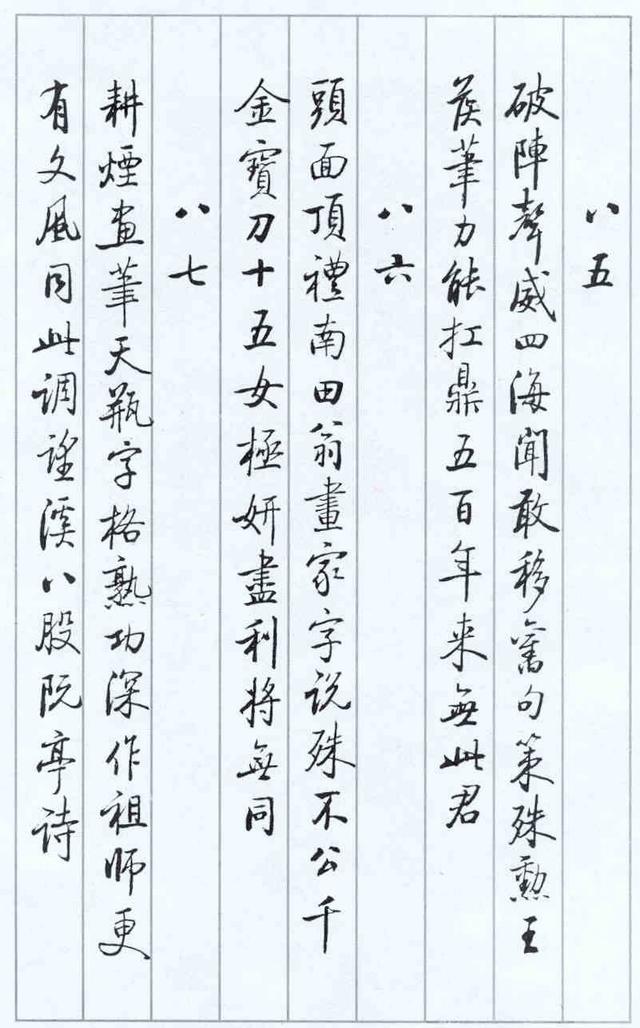 八五
破陣聲威四海聞敢移舊句策殊勳王
侯筆力能扛鼎五百年来無此君
八六
頭面頂禮南田翁畫家字説殊不公千
金寶刀十五女極妍盡利將無同
八七
耕煙畫筆天瓶字格熟功深作祖師更
有文風同此調望溪八股阮亭詩